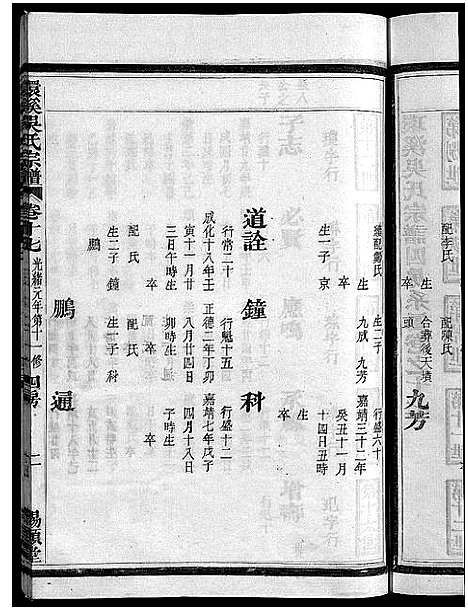 配李氏
生
卒
配陳氏
合葬後天墳頭
九芳
行盛六十
嘉靖三十二年
癸丑十一月
十四日丑時
生
卒
繼配鄭氏
生
卒
生二子
九成 九芳
生一子 京
道詮 鐘 科
行常二十
成化十八年壬
寅十一月廿
三日午時生
卒
配 氏
生二子 鐘
鵬
行魁十五
正德二年丁卯
八月廿四日
卯時生
卒
配 氏
生一子 科
行盛十二
嘉靖七年戊子
四月十八日
子時生
卒
鵬 通
環溪吳氏宗譜
卷十七
光緒元年第十一修
四房
二
錫類堂